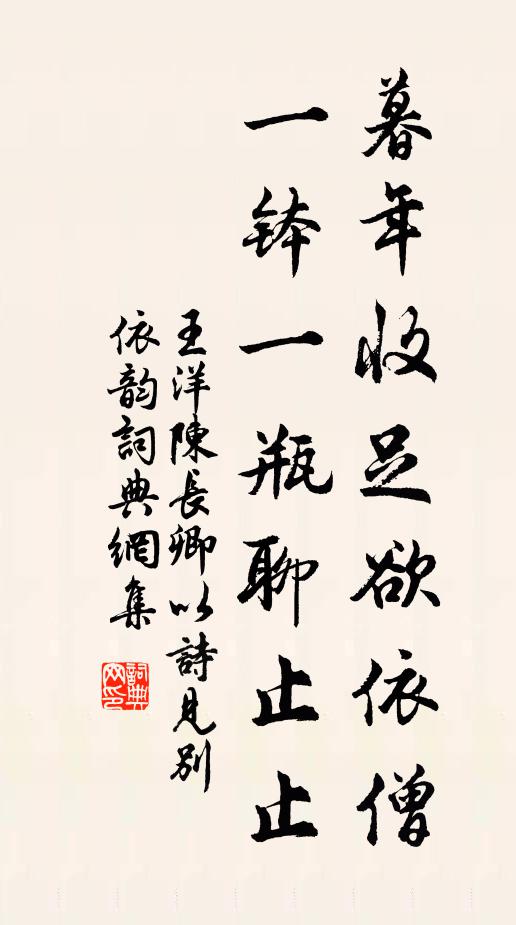 暮年收足欲依僧
一鉢一瓶聊止止
王洋陳長卿以詩見別
依韵詞典網集
詞典
网印